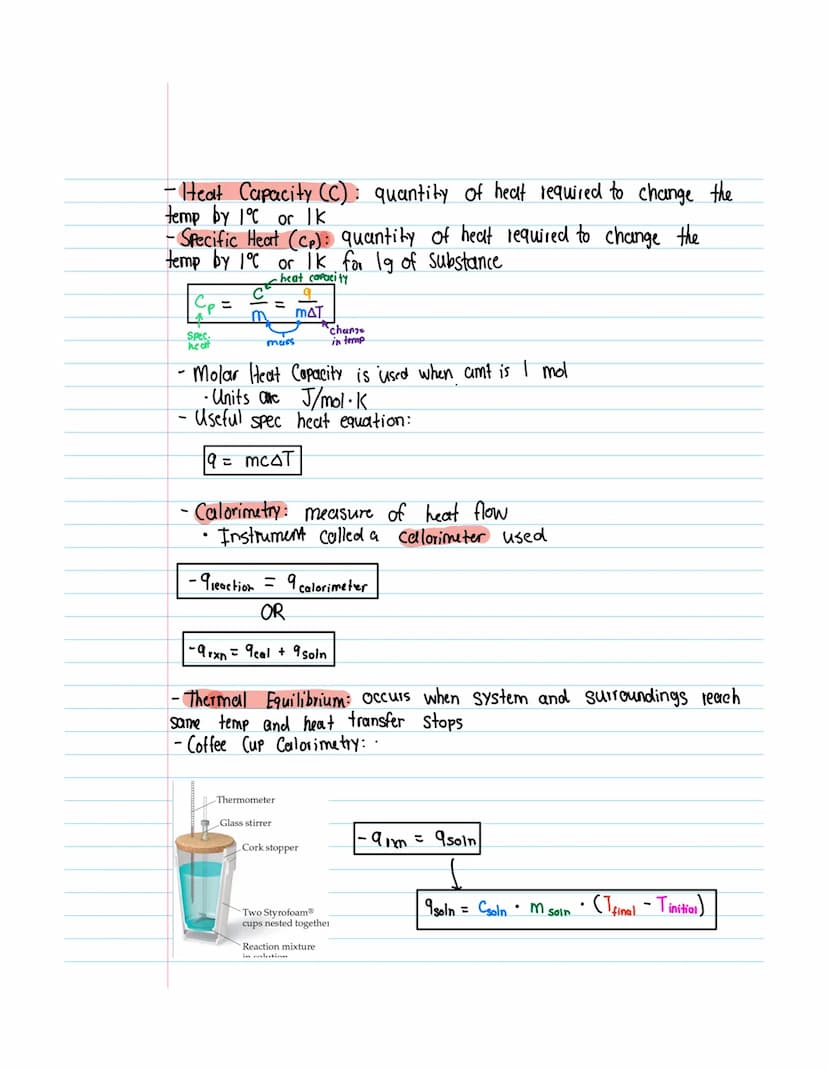 - Heat Capacity (C): quantity of heat required to change the
temp by 1°C or 1K
- Specific Heat (Cp): quantity of heat required to change the
temp by 1°C or 1K for 1g of substance
heat capacity
Cp = C/m = q/mΔT
spec. heat
mass
change in temp
- Molar Heat Capacity is used when amt is 1 mol
· Units are J/mol·K
- Useful spec heat equation:
q = mcΔT
- Calorimetry: measure of heat flow
· Instrument called a calorimeter used
-qreaction = qcalorimeter
OR
-qrxn = qcal + qsoln
- Thermal Equilibrium: occurs when system and surroundings reach
same temp and heat transfer stops
- Coffee Cup Calorimetry: ·
Thermometer
Glass stirrer
Cork stopper
Two Styrofoam®
cups nested together
Reaction mixture
in solution
-qrxn = qsoln
qsoln = Csoln · msoln · (Tfinal - Tinitial)